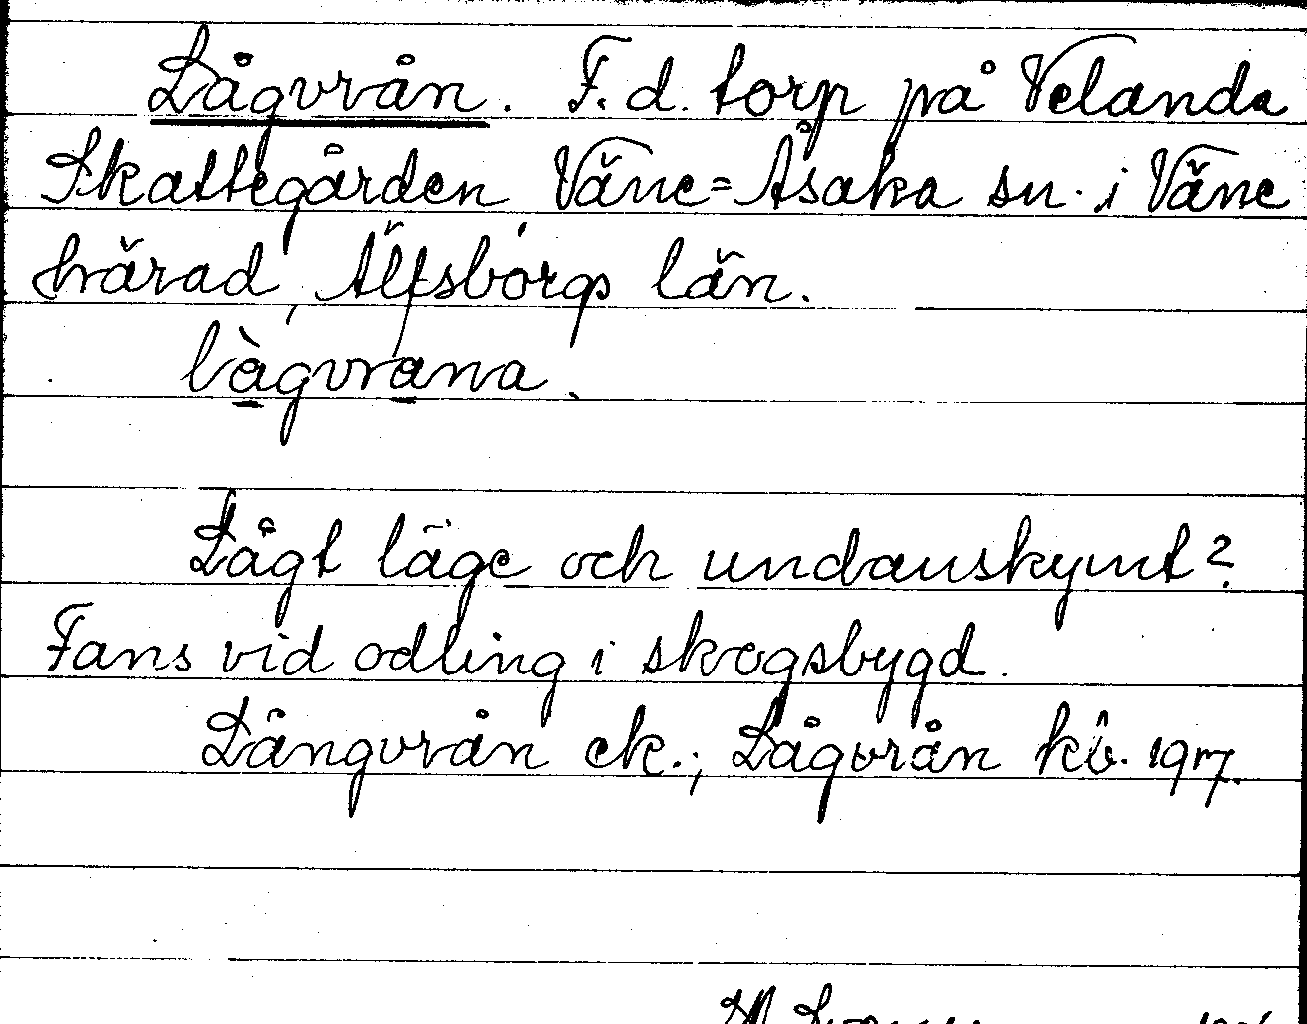 Lågvrån. F. d. torp på Velanda
Skattegården Väne=Åsaka sn. i Väne
härad, Älfsborgs län.
làgvrana.
Lågt läge och undanskymt?
Fans vid odling i skogsbygd.
Långvrån ek.; Lågvrån kb. 1917.